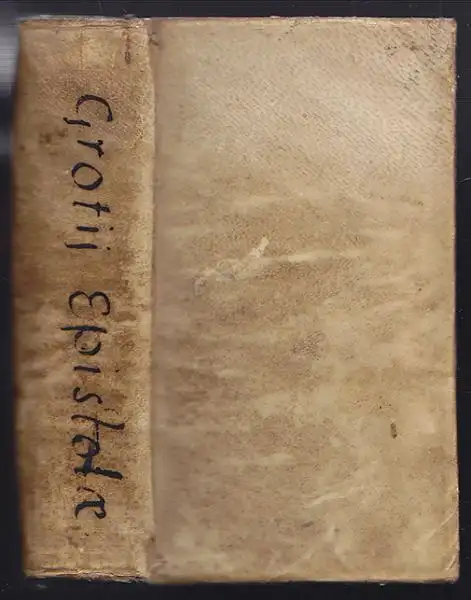 Grotij Epistolæ